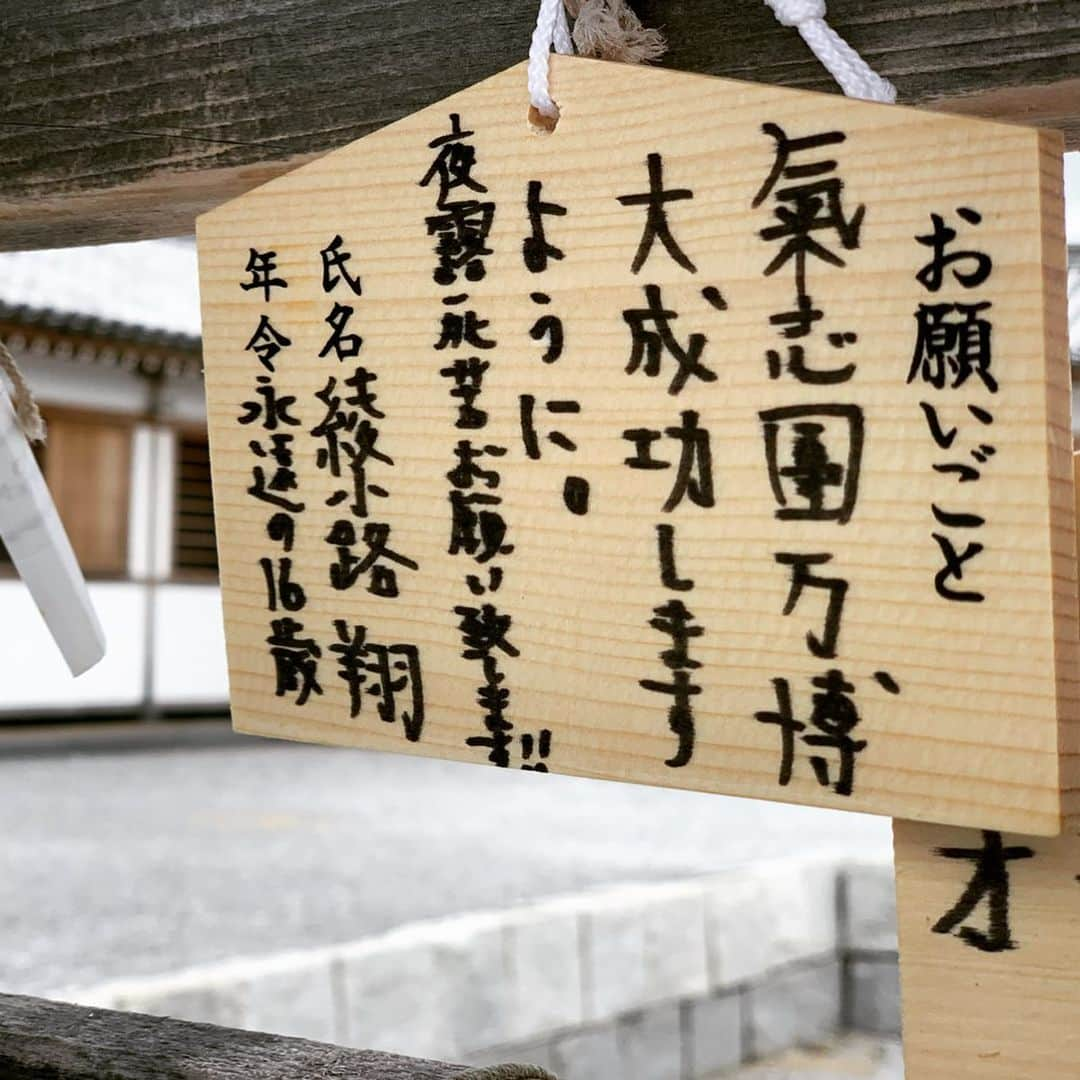 お願いごと
氣志團万博
大成功します
ように。
夜露死苦お願い致します!!
氏名 綾小路 翔
年令 永遠の16歳
才